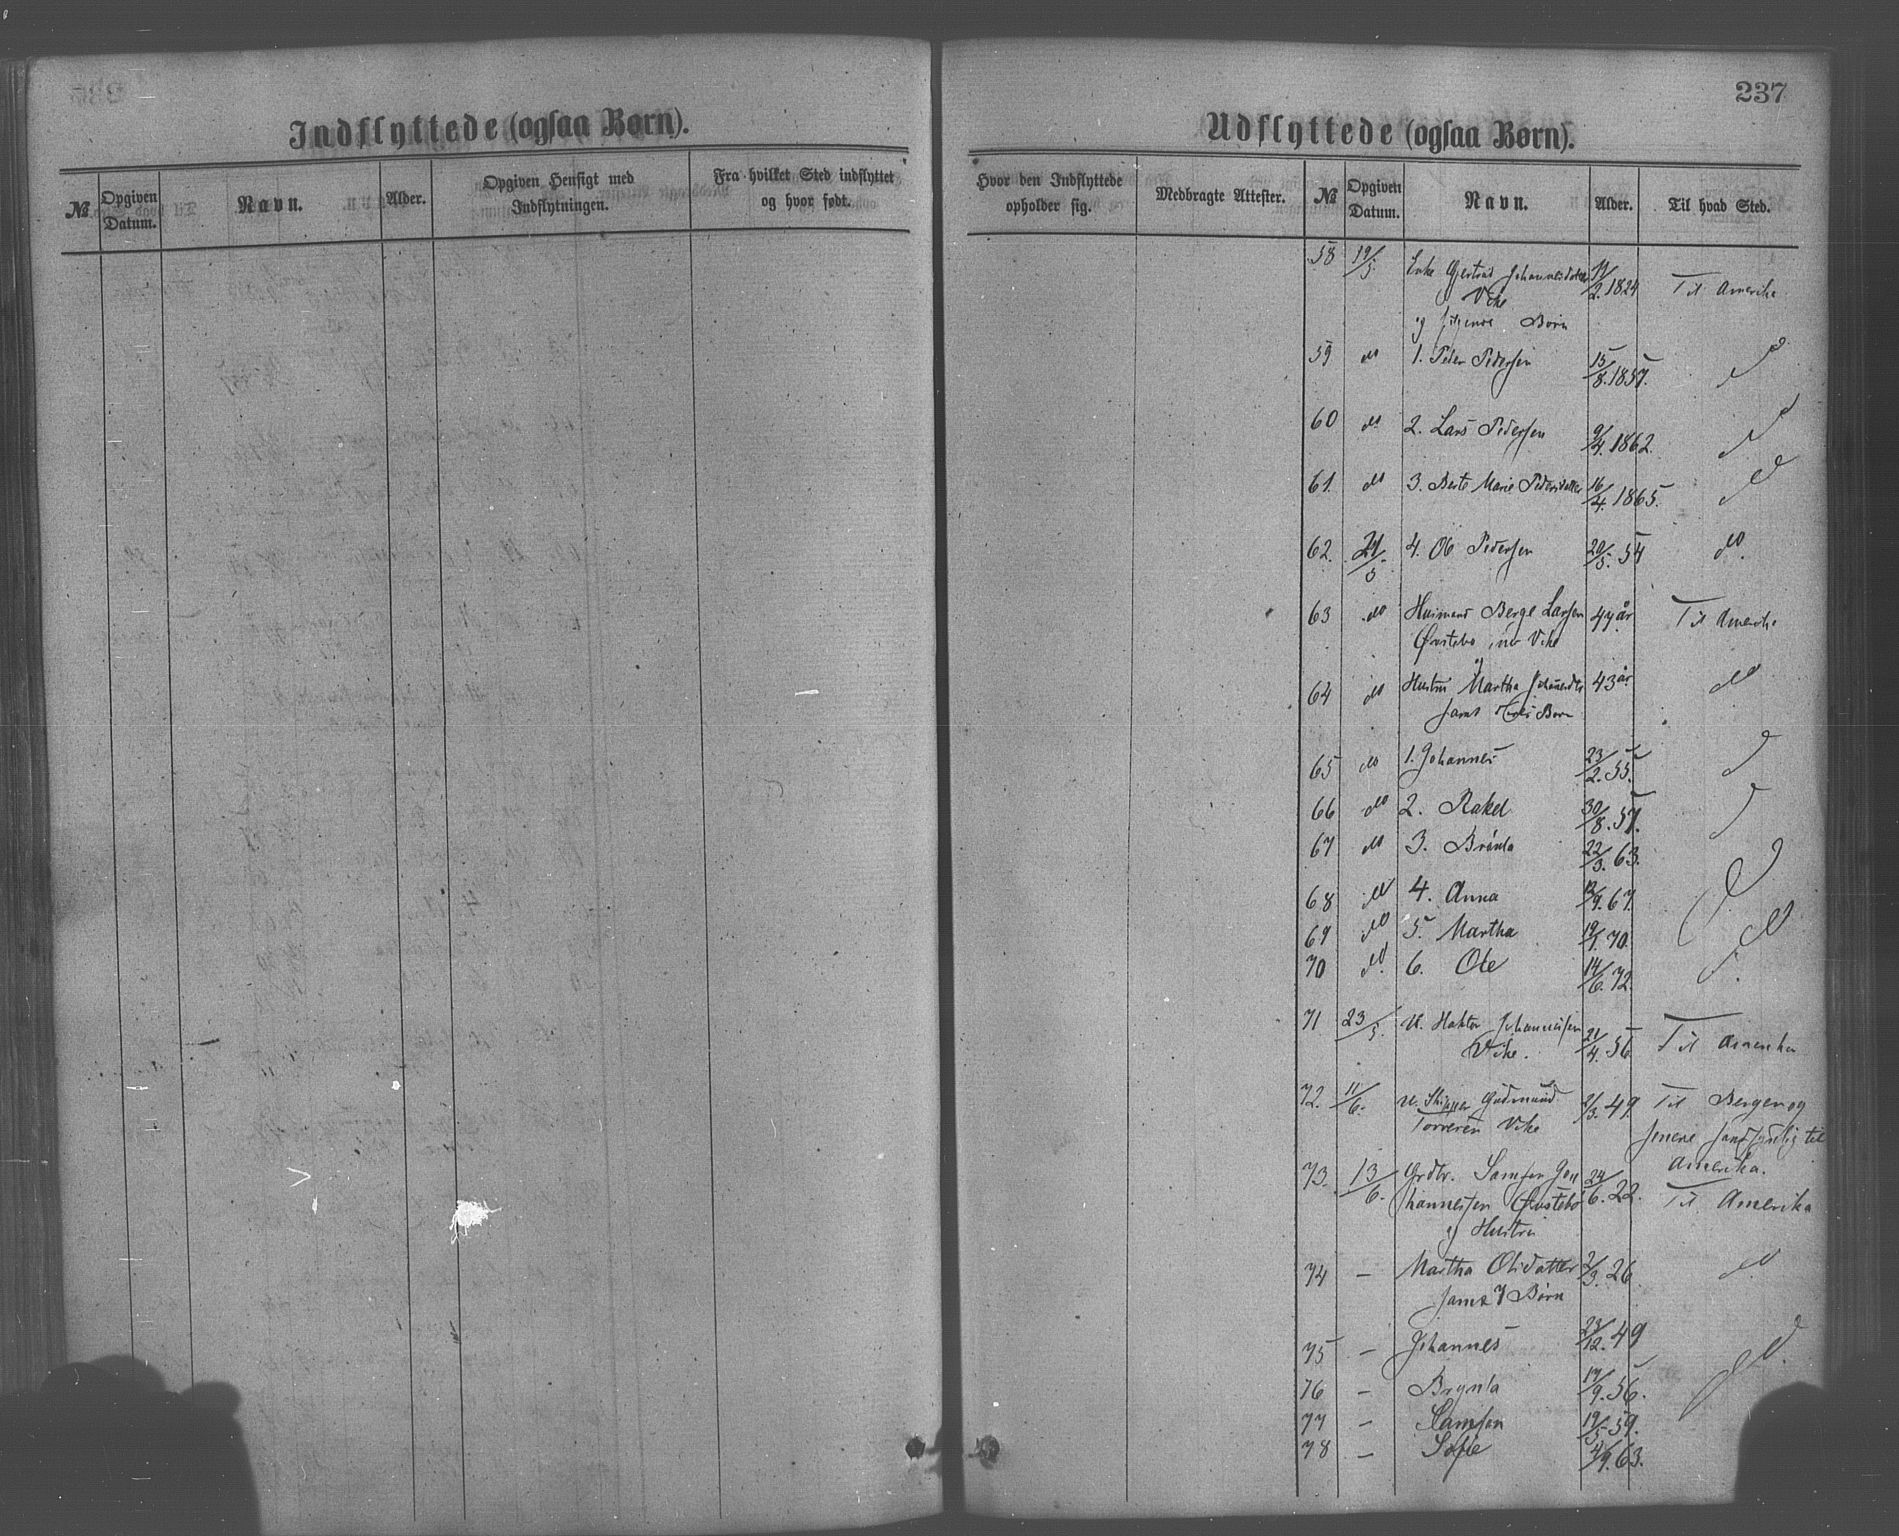 237
Indflyttede (ogsaa Børn).
Udflyttede (ogsaa Børn).
№ Opgiven Datum. Navn. Alder. Opgiven Hensigt med Indflytningen. Fra hvilket Sted indflyttet og hvor født.
Hvor den Indflyttede opholder sig. Medbragte Attester. № Opgiven Datum. Navn. Alder. Til hvad Sted.
58 19/5. Enke Gjertrud Johannesdatter 11/2. 1824 Til Amerika
Vike
og følgende Børn
59 do 1. Peder Pedersen 15/8. 1857. do
60 do 2. Lars Pedersen 9/4. 1862. do
61. do 3. Berte Marie Pedersdatter 16/4. 1865. do
62. 21/5 4. Ole Pedersen 20/5. 54 do.
63 do Huusmand Berge Larsen 44 år Til Amerika
Øvstebø, Vike
og
64 do Hustru Martha Johannesdtr 43 år do
samt Børn
65 do 1. Johannes 23/2. 55. do
66 do 2. Rakel 30/8. 57. do
67 do 3. Brønla 22/3. 63.
68 do 4. Anna 12/9. 67. do
69 do 5. Martha 19/1. 70. do
70 do. 6. Ole 14/6. 72. do
71 23/5. U. Johannessen 21/4. 56 Til Amerika
Vike.
72. 11/6. U. Gudmund 2/3. 49. Til Bergen og
Vike senere til
Amerika.
73. 13/6. Grdbr. Samsen Jo- 24/6. 22. Til Amerika
hannessen Øvstebø
og Hustru
74 – Martha Olsdatter 2/3. 26 do
samt 7 Børn
75 – Johannes 23/12. 49
76 – Brynla 17/9. 56. do
77 – Samsen 19/5 59.
78 – Sofie 4/9. 63.